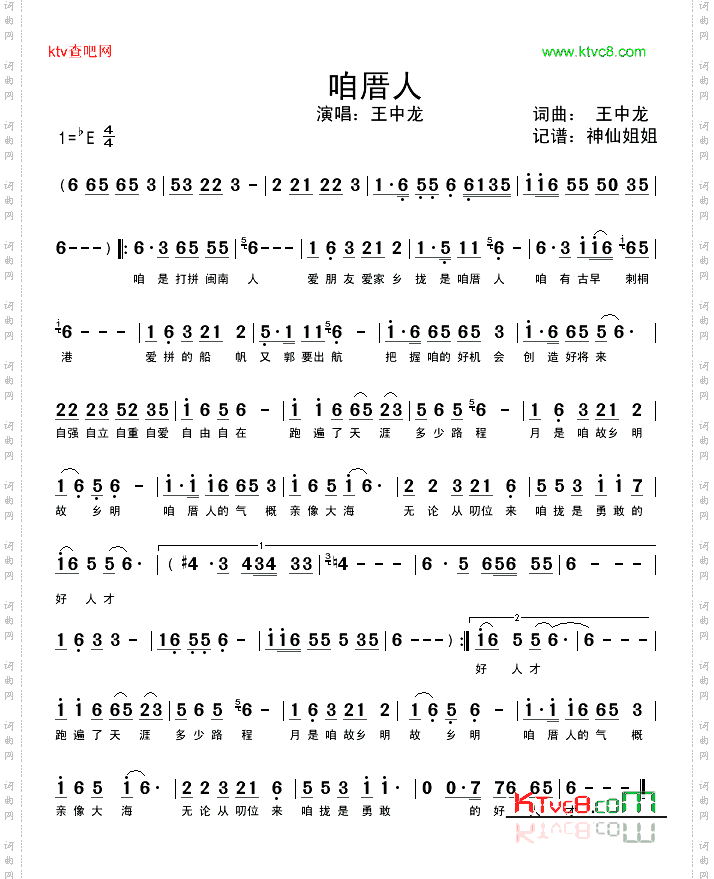 ktv查吧网 www.ktvc8.com
咱厝人
演唱：王中龙 词曲： 王中龙
1=♭E 4/4 记谱：神仙姐姐
(6 65 65 3 | 53 22 3 - | 2 21 22 3 | 1·6 55 6 6135 | i i6 55 50 35 |
6 - - - ) ‖: 6·3 65 55 | 6 - - - | 1 6 3 21 2 | 1·5 11 6 - | 6·3 i i6 65 |
咱 是 打拼 闽南 人 爱 朋 友 爱家 乡 拢 是 咱厝 人 咱 有 古早 刺桐
6 - - - | 1 6 3 21 2 | 5·1 11 6 - | i·6 65 65 3 | 6 i 65 5 6· |
港 爱 拼 的 船 帆 又 郭 要出 航 把 握 咱的 好机 会 创 造 好将 来
22 23 52 35 | i 6 5 6 - | i i6 65 23 | 5 6 5 6 - | 1 6 3 21 2 |
自强 自立 自重 自爱 自 由 自 在 跑 遍 了 天 涯 多 少 路 程 月 是 咱 故乡 明
1 6 5 6 - | i·i i6 65 3 | i 6 5 i 6· | 2 2 3 21 6 | 5 5 3 i i 7 |
故 乡 明 咱 厝 人的 气 概 亲 像 大 海 无 论 从 叨位 来 咱 拢 是 勇 敢 的
i6 5 5 6· | ( #4·3 434 33 | ♮4 - - - | 6·5 656 55 | 6 - - - |
1
好 人 才
1 6 3 3 - | 16 55 6 - | i i6 55 5 35 | 6 - - - ) :‖ i6 5 5 6· | 6 - - - |
2
好 人 才
i i6 65 23 | 5 6 5 6 - | 1 6 3 21 2 | 1 6 5 6 - | i·i i6 65 3 |
跑 遍 了 天 涯 多 少 路 程 月 是 咱 故乡 明 故 乡 明 咱 厝 人的 气 概
i 6 5 i 6· | 2 2 3 21 6 | 5 5 3 i i | 0 0·7 76 65 | 6 - - - ‖
亲 像 大 海 无 论 从 叨位 来 咱 拢 是 勇 敢 的 好 人 才
KTvc8.com